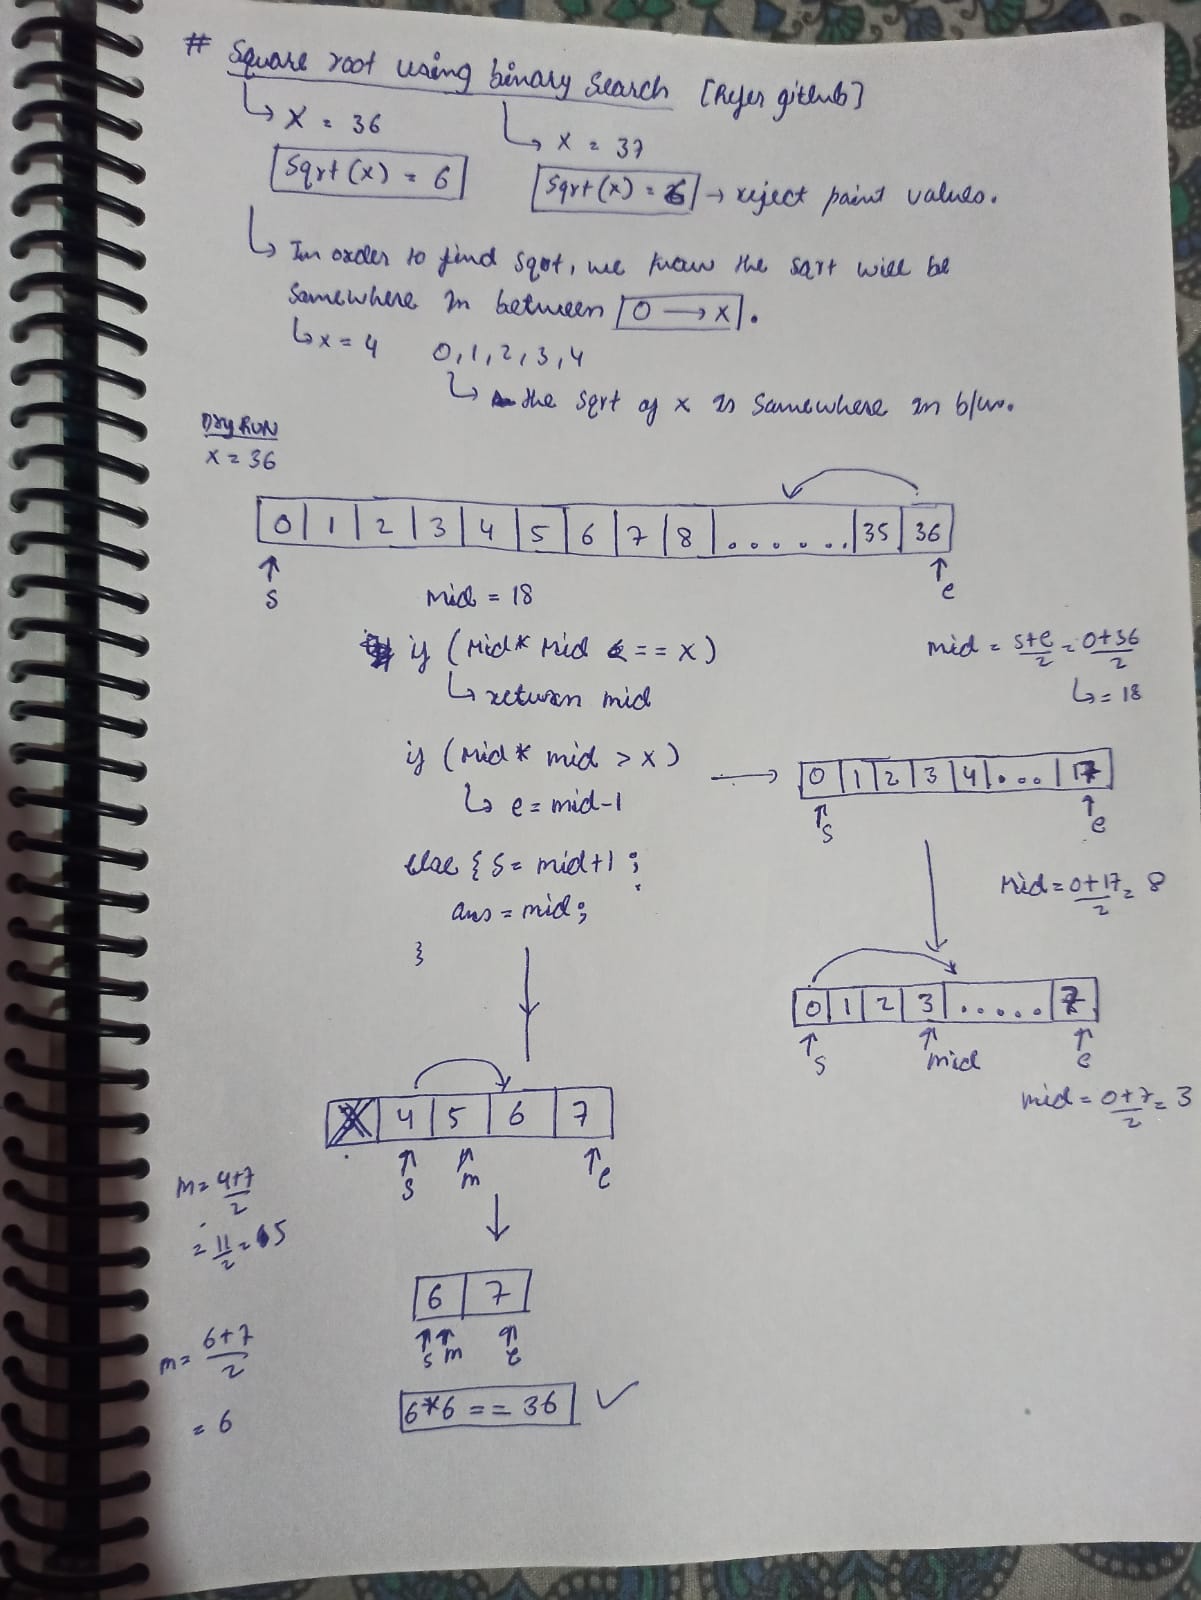 # Square root using binary Search [Refer github]
↳ X = 36
↳ X = 37
Sqrt(x) = 6
Sqrt(x) = 6 → reject point values.
↳ In order to find sqrt, we know the sqrt will be
somewhere in between 0 → x.
↳ x = 4 0,1,2,3,4
↳ the sqrt of x is somewhere in b/w.
Dry RUN
X = 36
0 1 2 3 4 5 6 7 8 ....... 35 36
↑ s ↑ e
mid = 18
if (mid * mid == x)
↳ return mid
mid = s+e/2 = 0+36/2
↳ = 18
if (mid * mid > x) →
↳ e = mid-1
0 1 2 3 4 ... 17
↑ s ↑ e
else { s = mid+1 ;
ans = mid;
}
mid = 0+17/2 = 8
0 1 2 3 ..... 7
↑ s ↑ mid ↑ e
mid = 0+7/2 = 3
4 5 6 7
↑ s ↑ m ↑ e
m = 4+7/2
= 11/2 = 5
6 7
↑ s ↑ m ↑ e
m = 6+7/2
= 6
6*6 == 36 ✓